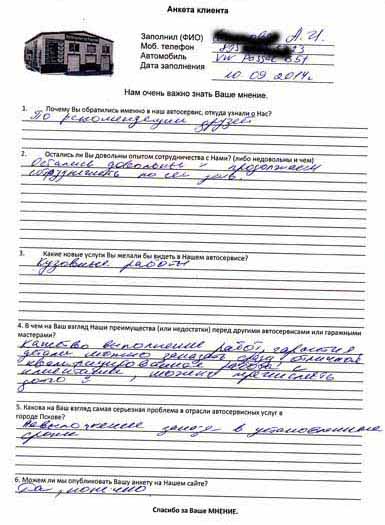 Анкета клиента
Заполнил (ФИО) А.И.
Моб. телефон
Автомобиль VW Passat B5+
Дата заполнения
10.09.2014г.
Нам очень важно знать Ваше мнение.
1. Почему Вы обратились именно в наш автосервис, откуда узнали о Нас?
По рекомендации друзей
2. Остались ли Вы довольны опытом сотрудничества с Нами? (либо недовольны и чем)
Остались довольны и продолжаем
сотрудничать по сей день.
3. Какие новые услуги Вы желали бы видеть в Нашем автосервисе?
Кузовные работы
4. В чем на Ваш взгляд Наши преимущества (или недостатки) перед другими автосервисами или гаражными
мастерами?
Качество выполнения работ, гарантия
детали можно заказать сразу, отличная
работа с
клиентами, можно перечислять
долго
5. Какова на Ваш взгляд самая серьезная проблема в отрасли автосервисных услуг в
городе Пскове?
Невыполнение заказа в установленные
сроки
6. Можем ли мы опубликовать Вашу анкету на Нашем сайте?
Да, конечно
Спасибо за Ваше МНЕНИЕ.